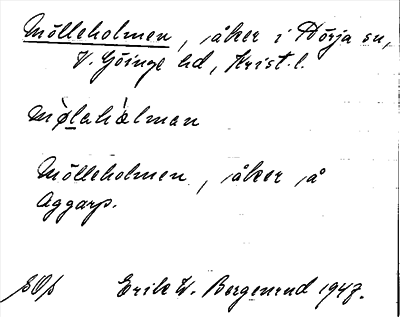 Mölleholmen, åker i Norja sn,
V. Göinge hd, Krist. l.
Mølahàlman
Mölleholmen, åker å
Aggarp.
Erik W. Bergenrud 1947.